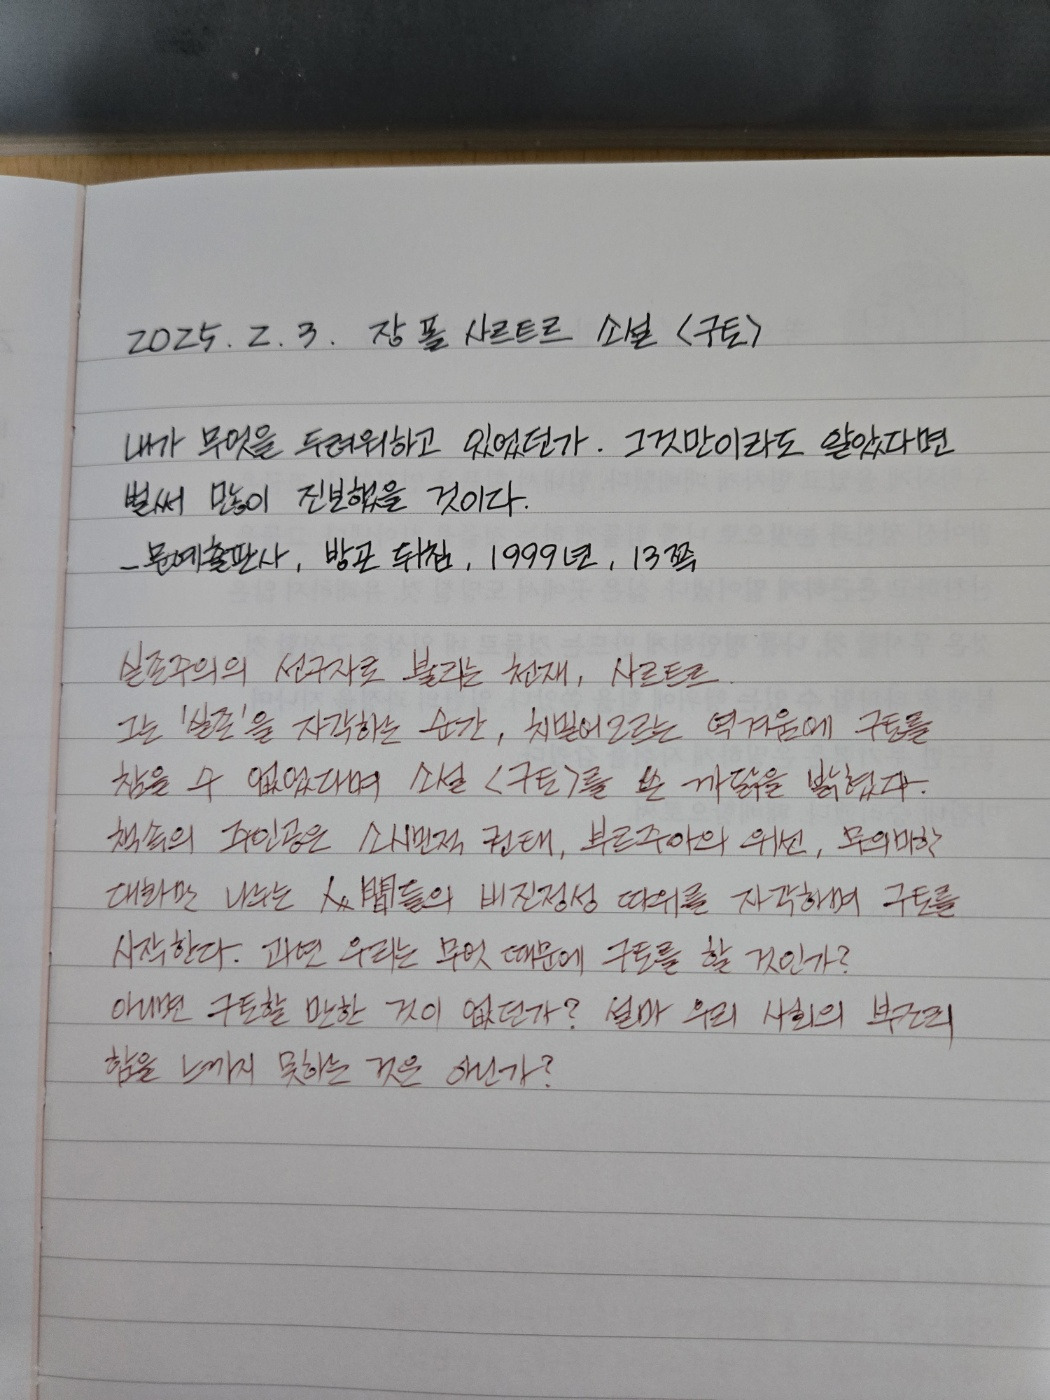 2025. 2. 3. 장 폴 사르트르 소설 <구토>
내가 무엇을 두려워하고 있었던가. 그것만이라도 알았다면
벌써 많이 진보했을 것이다.
_문예출판사, 방곤 뒤침, 1999년, 13쪽
실존주의의 선구자로 불리는 천재, 사르트르.
그는 '실존'을 자각하는 순간, 치밀어오르는 역겨움에 구토를
참을 수 없었다며 소설 <구토>를 쓴 까닭을 밝혔다.
책속의 주인공은 소시민적 권태, 부르주아의 위선, 무의미한
대화만 나누는 人間들의 비진정성 따위를 자각하며 구토를
시작한다. 과연 우리는 무엇 때문에 구토를 할 것인가?
아니면 구토할 만한 것이 없던가? 설마 우리 사회의 부조리
함을 느끼지 못하는 것은 아닌가?